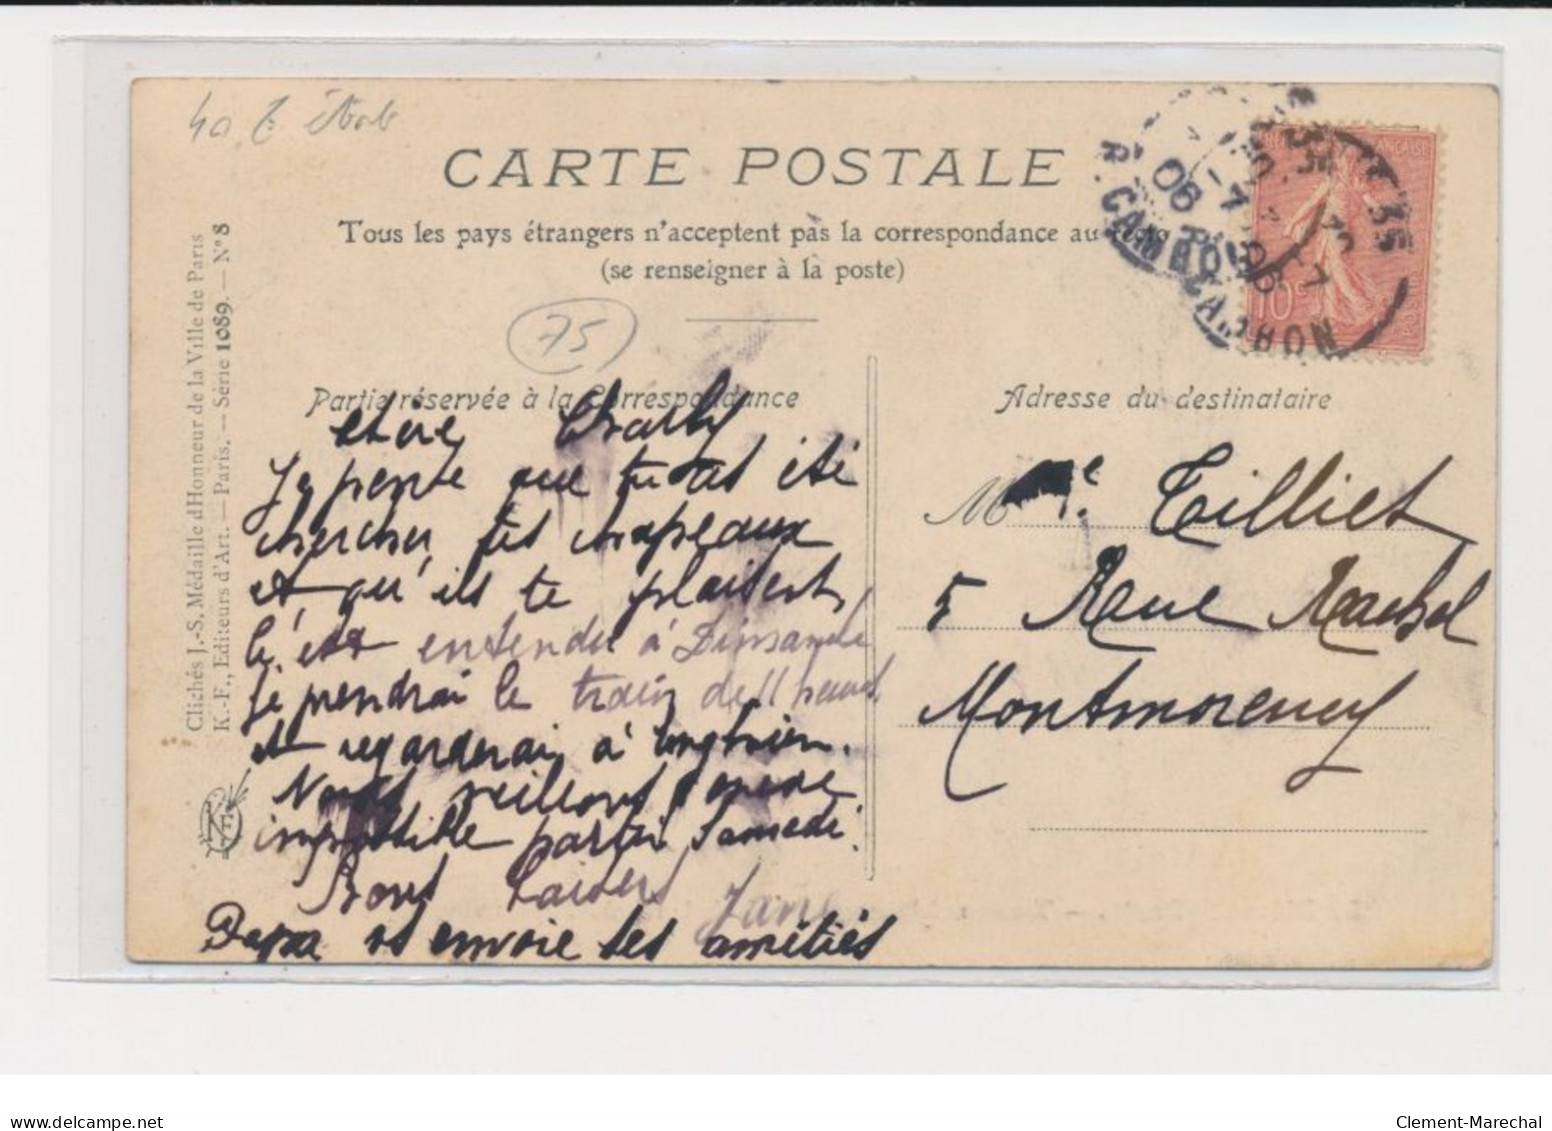 40 €
CARTE POSTALE
Tous les pays étrangers n'acceptent pas la correspondance au
(se renseigner à la poste)
75
Partie réservée à la Correspondance
Adresse du destinataire
Clichés J.-S. Médaille d'Honneur de la Ville de Paris
K.-F., Editeurs d'Art. — Paris. — Série 1089. — N° 8
chère Charly
J'y pense que tu as été
chercher tes chapeaux
et qu'ils te plaisent,
c'est entendu à Dimanche
je prendrai le train de 11 heures
et regarderai à
Nous veillons encore
impossible partir Samedi.
Bons baisers Jane
Papa et envoie ses amitiés
M e Tilliet
5 Rue Rachel
Montmorency
35
R. CAMBON
06
10c
delcampe.net
Clement-Marechal